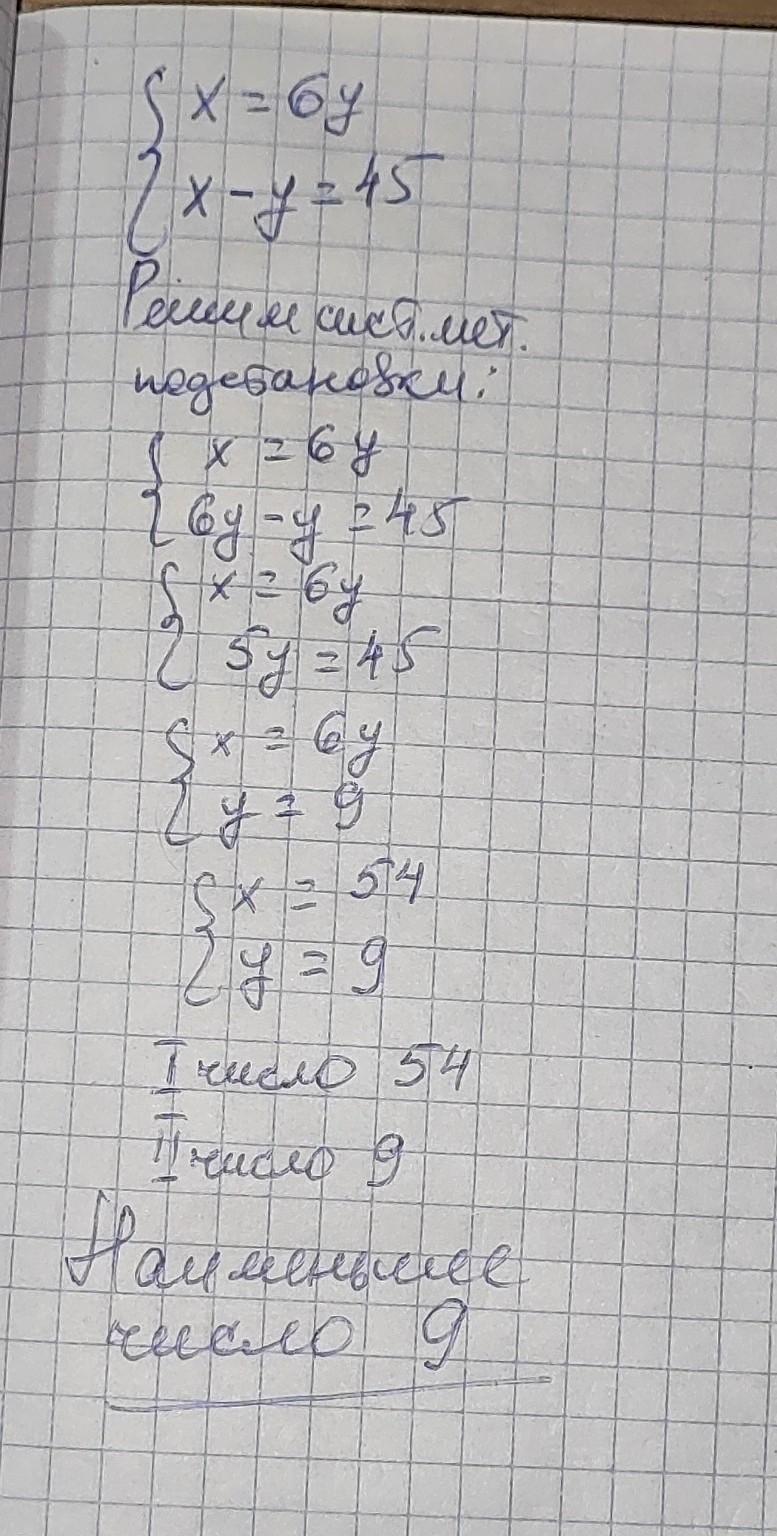 x = 6y
x - y = 45
Решим сист. мет.
подстановки:
x = 6y
6y - y = 45
x = 6y
5y = 45
x = 6y
y = 9
x = 54
y = 9
I число 54
II число 9
Наименьшее
число 9